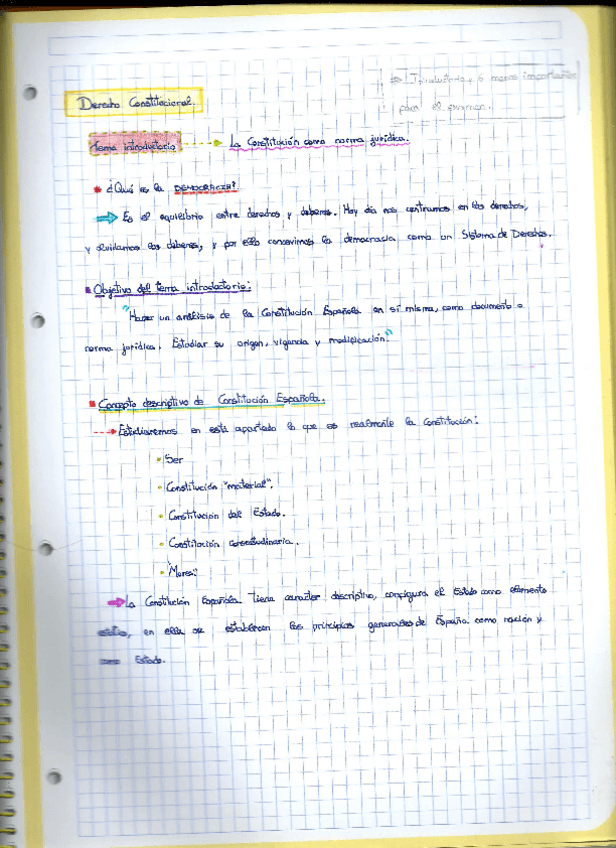 Introductorio y 6 menos importantes
para el examen.
Derecho Constitucional.
Tema introductorio La Constitución como norma jurídica.
¿Qué es la DEMOCRACIA?
Es el equilibrio entre derechos y deberes. Hoy día nos centramos en los derechos,
y olvidamos los deberes, y por ello concevimos la democracia como un Sistema de Derechos.
Objetivo del tema introductorio:
"Hacer un análisis de la Constitución Española en sí misma, como documento o
norma jurídica. Estudiar su origen, vigencia y modificación."
Concepto descriptivo de Constitución Española.
Estudiaremos en este apartado lo que es realmente la Constitución:
Ser
Constitución "material".
Constitución del Estado.
Constitución consuetudinaria.
"Mores."
La Constitución Española tiene carácter descriptivo, configura el Estado como elemento
en ella se establecen los principios generales de España como nación y
Estado.